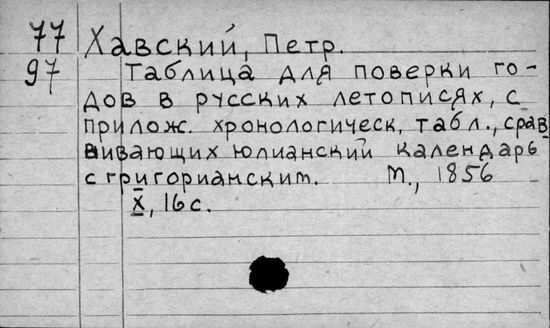 77 Хавский, Петр.
97 Таблица для поверки го-
дов в русских летописях, с
прилож. хронологическ, табл., срав
нивающих юлианский календарь
с григорианским. М., 1856
X, 16 с.